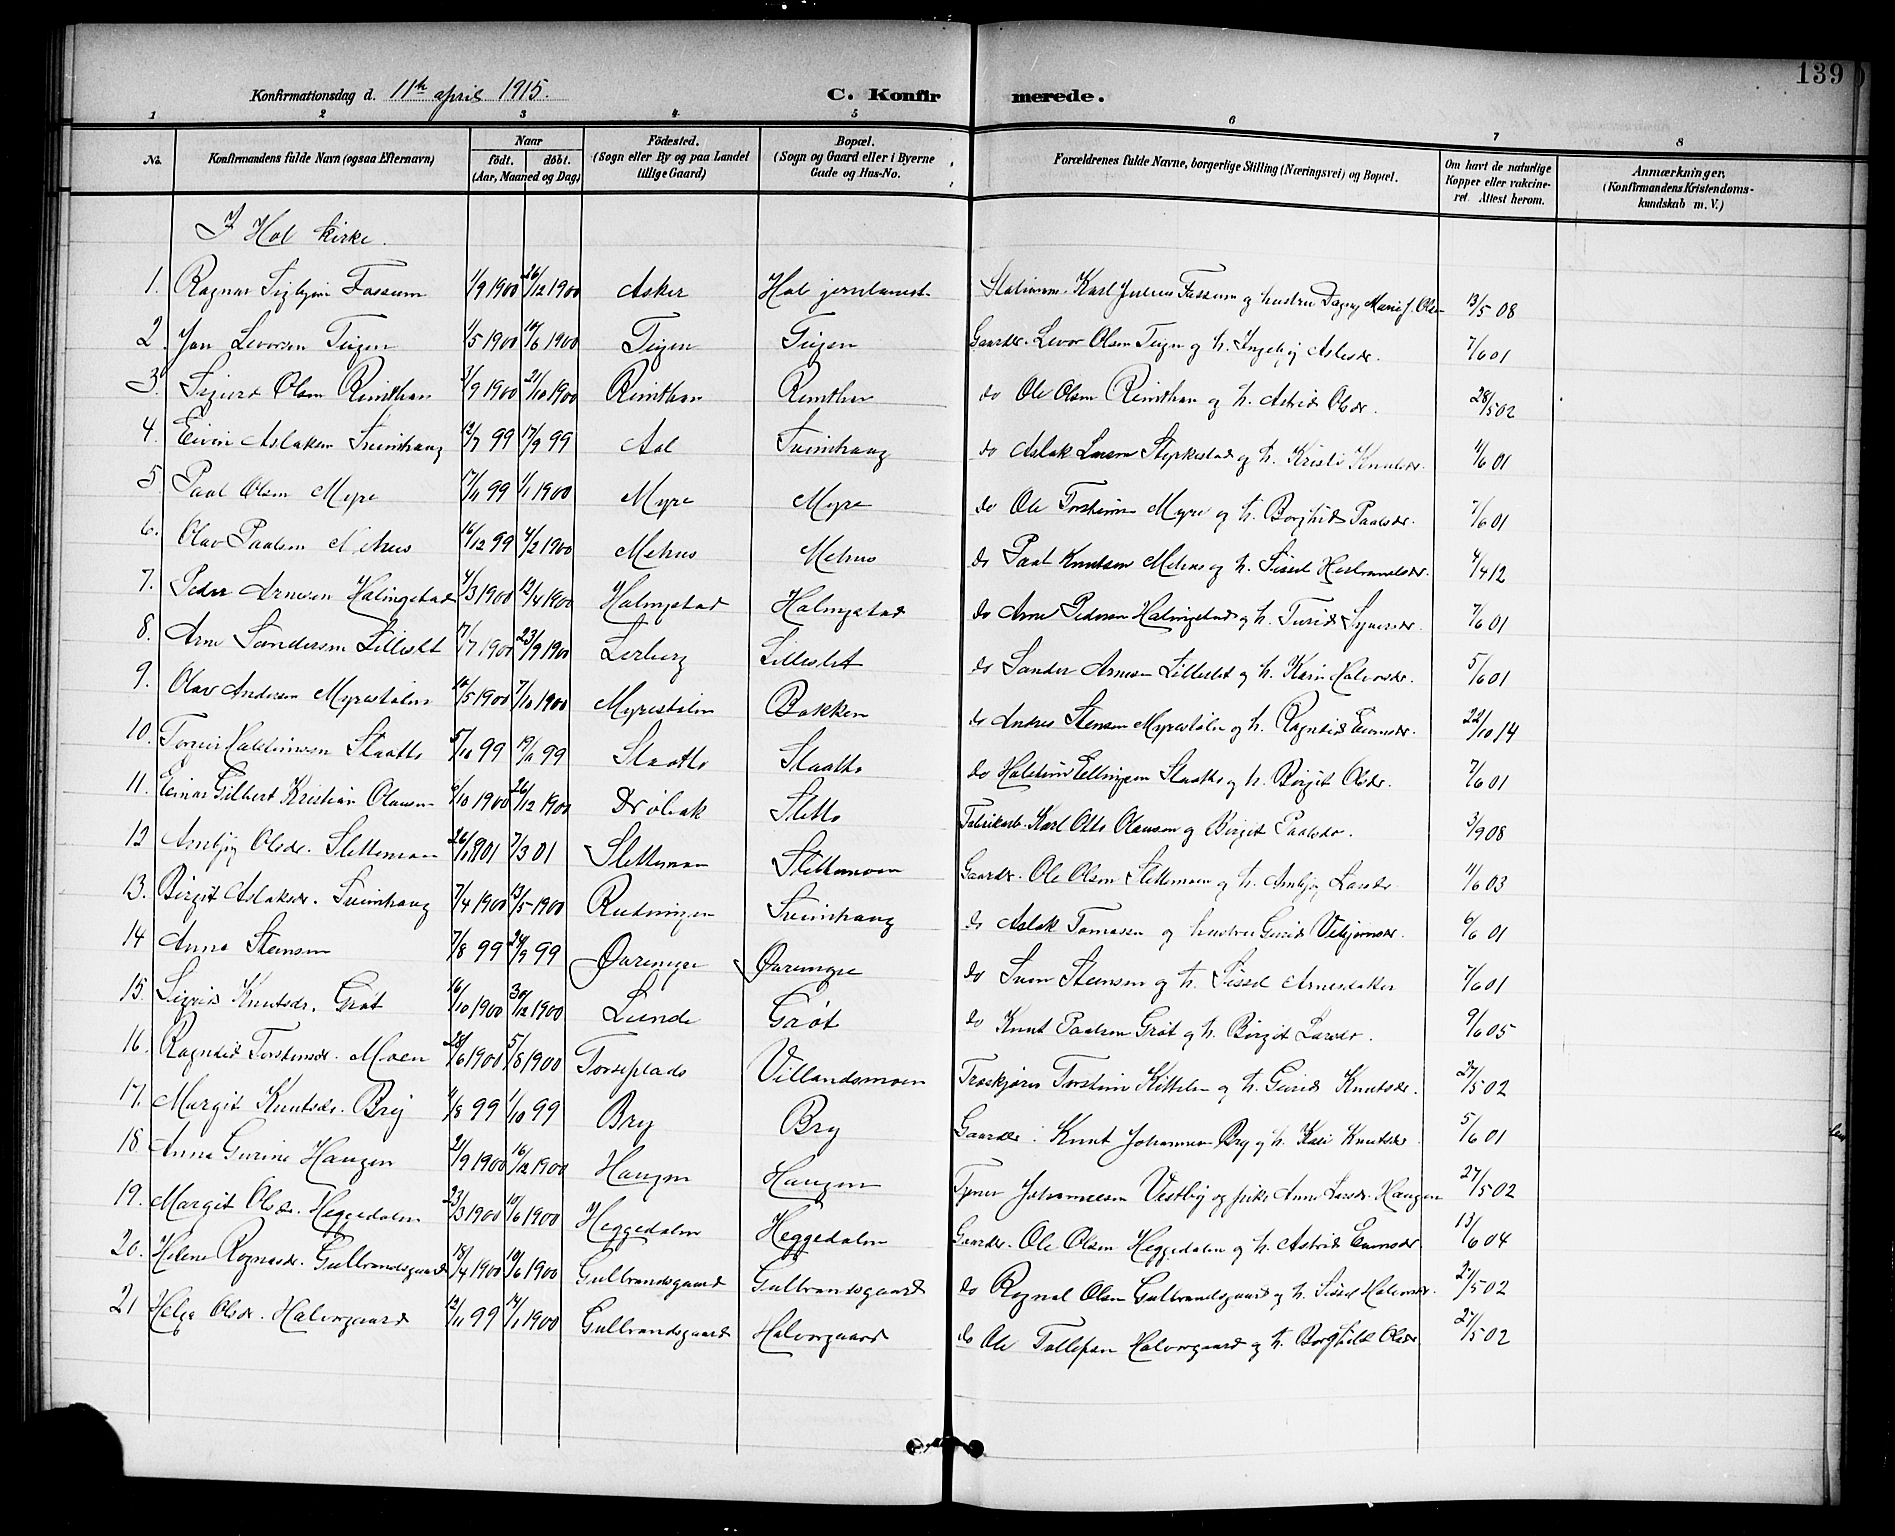 139
Konfirmationsdag d. 11te april 1915.
C. Konfirmerede.
1 2 3 4 5 6 7 8
No. Konfirmandens fulde Navn (ogsaa Efternavn) Naar født. døbt. (Aar, Maaned og Dag) Födested. (Sogn eller By og paa Landet tillige Gaard) Bopæl. (Sogn og Gaard eller i Byerne Gade og Hus-No. Forældrenes fulde Navne, borgerlige Stilling (Næringsvei) og Bopæl. Om havt de naturlige Kopper eller vakcineret. Attest herom. Anmærkninger. (Konfirmandens Kristendomskundskab m. V.)
I Hol kirke.
1. Ragnar Sigbjørn Fossum 1/9 1900 26/12 1900 Asker Hol Karl Julius Fossum og hustru Dagny Marie J. Olsen 13/5 08
2. Jon Levorsen Teigen 1/5 1900 10/6 1900 Teigen Teigen Gaardbr. Levor Olsen Teigen og h. Ingebj. Aslesdr. 7/6 01
3. Sigurd Olsen Reinthon 3/9 1900 21/10 1900 Reinthon Reinthon do Ole Olsen Reinthon og h. Astrid Olsdr. 28/5 02
4. Eivin Aslaksen Sveinhaug 12/7 99 17/9 99 Aal Sveinhaug do Aslak Larsen Styrkestad og h. Kristi Knutsdr. 11/6 01
5. Paal Olsen Myre 17/11 99 1/1 1900 Myre Myre do Ole Torsteinsen Myre og h. Borghild Paalsdr. 7/6 01
6. Olav Paalsen Mehus 16/12 99 4/2 1900 Mehus Mehus do Paal Knutsen Mehus og h. Sissel Herbrandsdr. 4/4 12
7. Peder Arnesen Holingstad 4/3 1900 12/4 1900 Holingstad Holingstad do Arne Pedersen Holingstad og h. Turid Syversdr. 7/6 01
8. Arne Sandersen Lilleslet 17/7 1900 23/9 1900 Lerberg Lilleslet do Sander Arnesen Lilleslet og h. Kari Halvorsdr. 5/6 01
9. Olav Andersen Myrestølen 16/5 1900 7/10 1900 Myrestølen Bakken do Andres Stensen Myrestølen og h. Ragndid Eivinsdr. 22/10 14
10. Torgeir Halsteinsen Slaatto 5/10 99 19/11 99 Slaatto Slaatto do Halstein Ellingsen Slaatto og h. Birgit Olsdr. 7/6 01
11. Einar Gilbert Kristian Olausen 6/10 1900 26/12 1900 Drøbak Sletto Fabrikarb. Karl Otto Olausen og Birgit Paalsdr. 3/9 08
12 Arnbjg Olsdr. Slettemoen 26/1 1901 7/3 01 Slettemoen Slettemoen Gaardbr. Ole Olsen Slettemoen og h. Arnbjg Larsdr. 11/6 03
13. Birgit Aslaksdr. Sveinhaug 7/4 1900 13/5 1900 Rudningen Sveinhaug do Aslak Tomasen og hustru Gurid Vebjørnsdr. 6/6 01
14 Anna Steinsen 7/8 99 24/9 99 Øvremyre Øvremyre do Svein Steinsen og h. Sissel Arnesdatter 7/6 01
15. Sigrid Knutsdr. Grøt 16/10 1900 30/12 1900 Lunde Grøt do Knut Paalsen Grøt og h. Birgit Larsdr. 9/6 05
16. Ragndid Torsteinsdr. Moen 28/6 1900 5/8 1900 Torseplads Villandsmoen Torstein Kittilsen og h. Gurid Knutsdr. 27/5 02
17. Margit Knutsdr. Bry 4/8 99 1/10 99 Bry Bry Gaardbr. Knut Johannesen Bry og h. Kari Knutsdr. 5/6 01
18. Anna Gurine Haugen 21/9 1900 16/12 1900 Haugen Haugen Johannesen Vestby og pike Anne Larsdr. Haugen 27/5 02
19. Margit Olsdr. Heggedalen 23/3 1900 10/6 1900 Heggedalen Heggedalen Gaardbr. Ole Olsen Heggedalen og h. Astrid Eivinsdr. 13/6 04
20. Helene Rognesdr. Gulbrandsgaard 18/4 1900 10/6 1900 Gulbrandsgaard Gulbrandsgaard do Rognal Olsen Gulbrandsgaard og h. Sissel Halvorsdr. 27/5 02
21 Helga Olsdr. Halvorgaard 12/11 99 14/1 1900 Gulbrandsgaard Halvorgaard do Ole Tollefsen Halvorgaard og h. Borghild Olsdr. 27/5 02